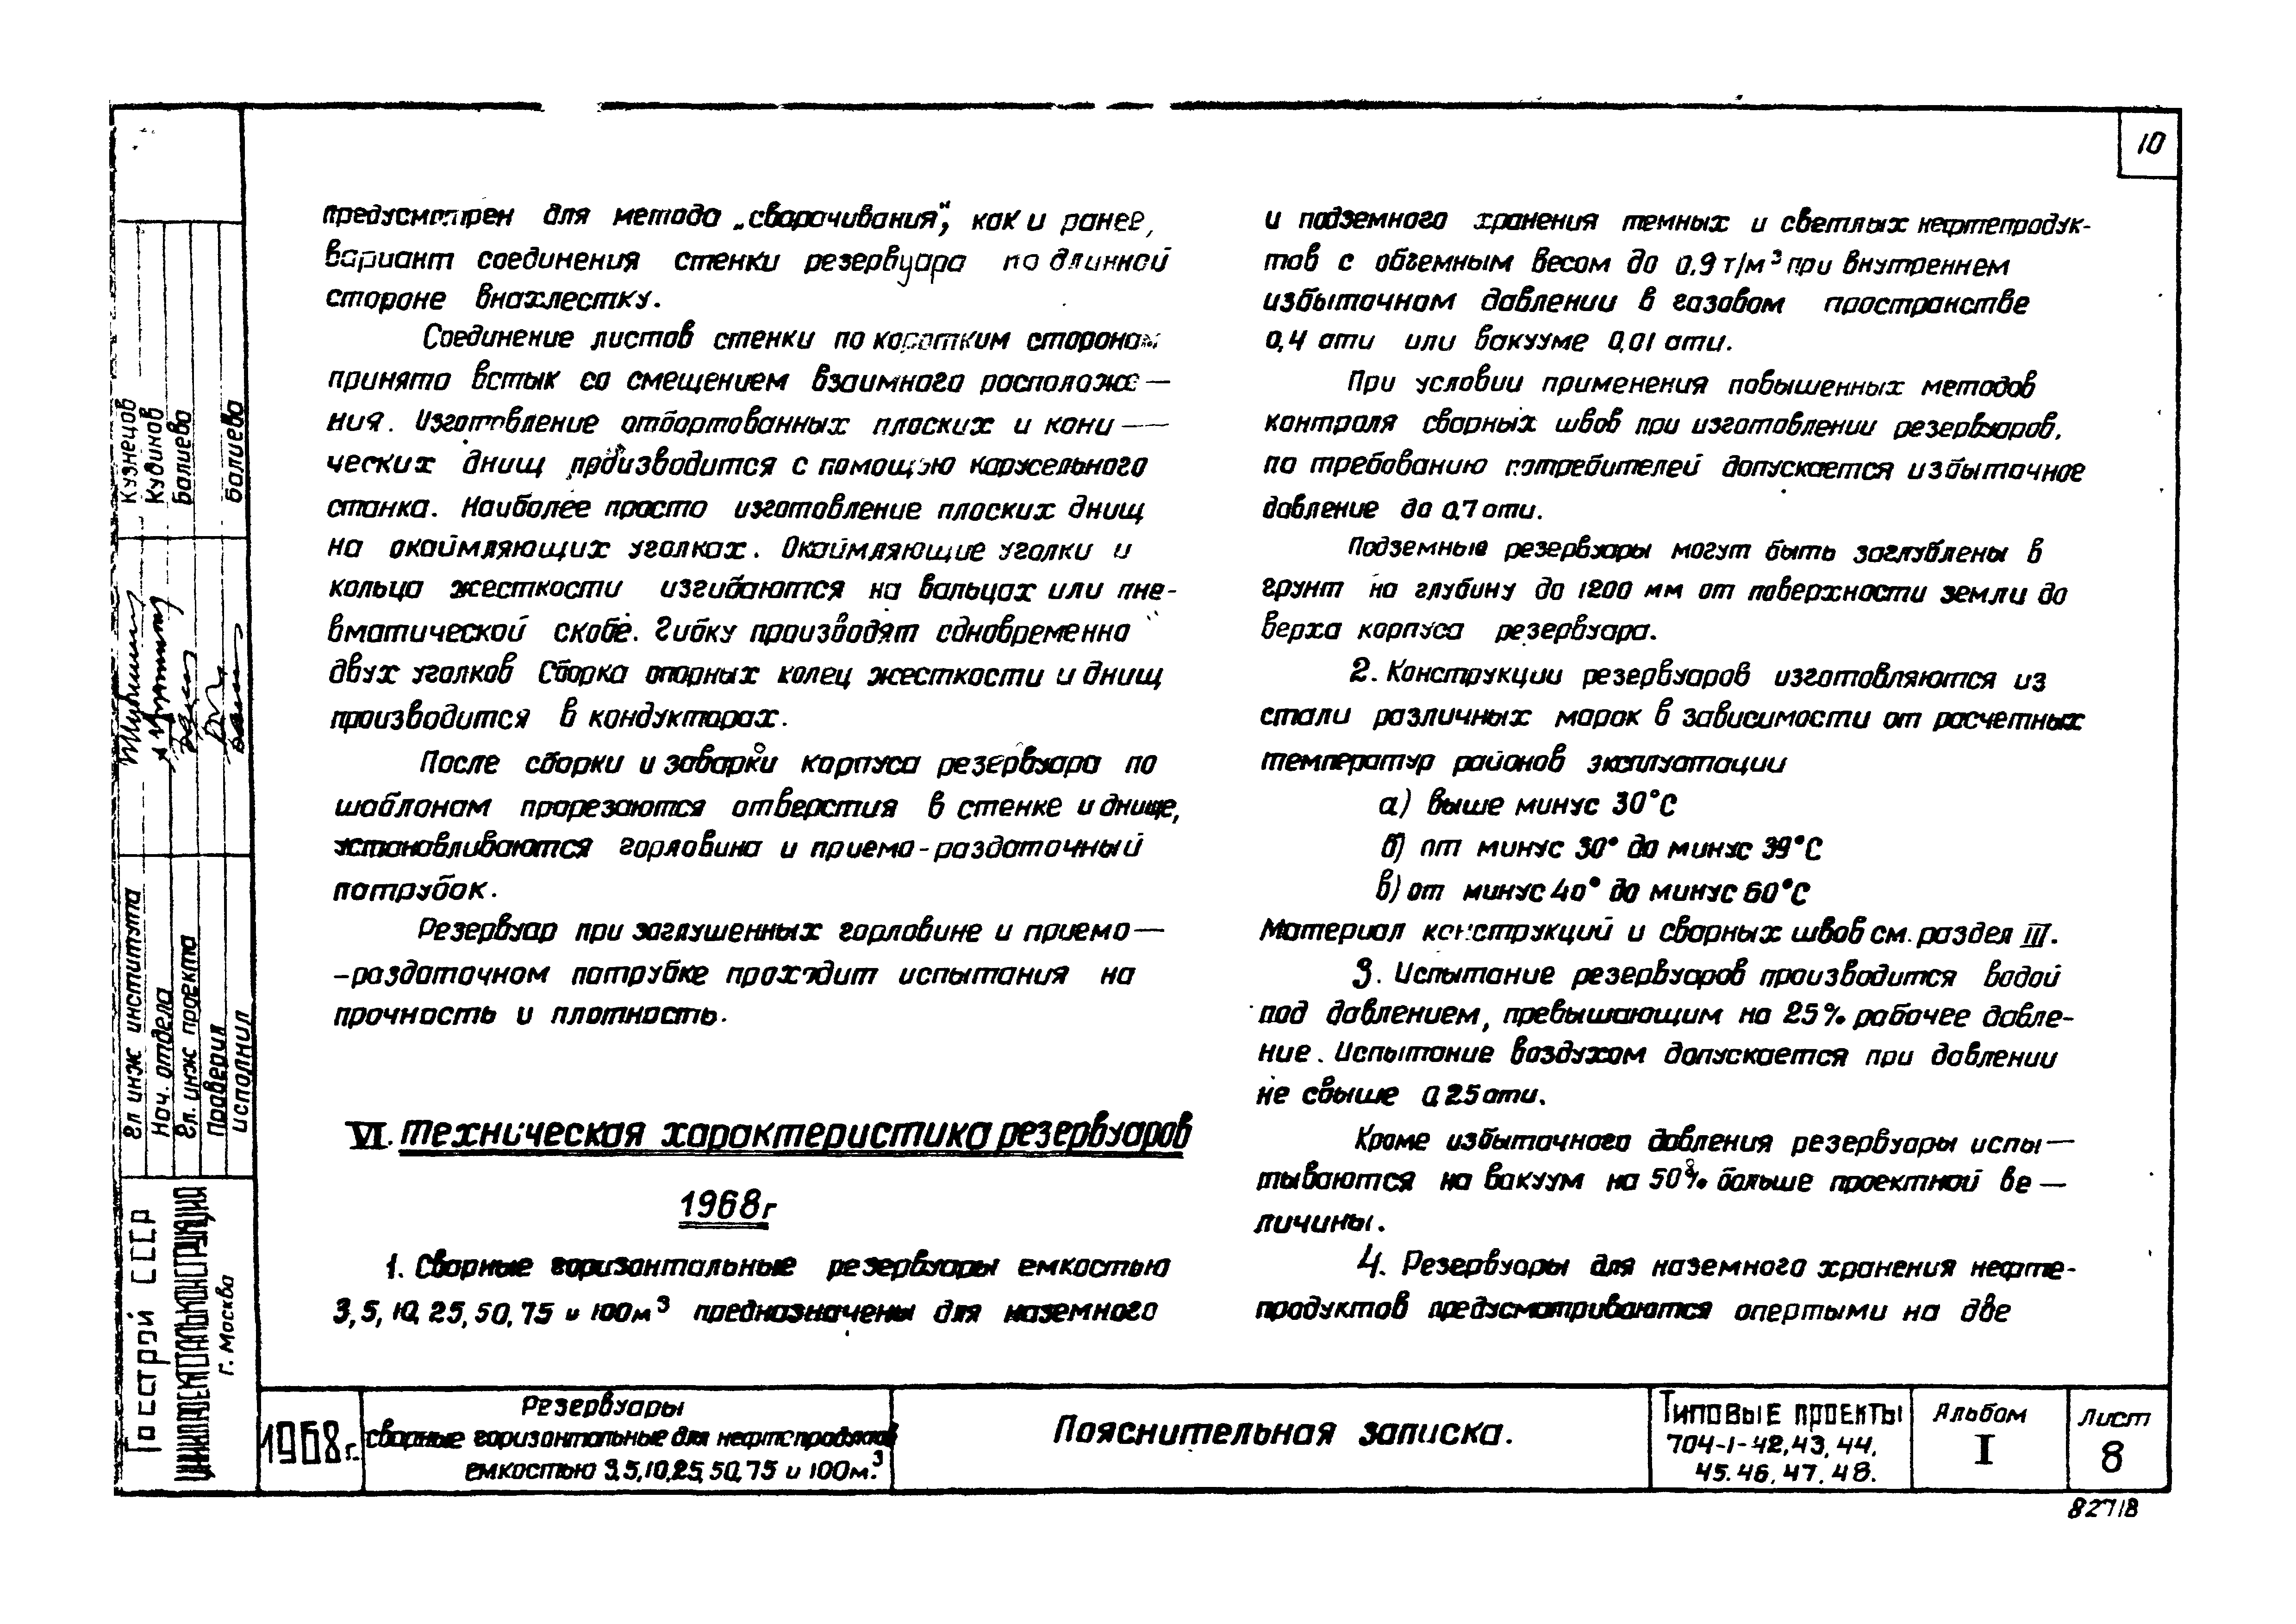 10
предусмотрен для метода „сворачивания“, как и ранее,
вариант соединения стенки резервуара по длинной
стороне внахлестку.
Соединение листов стенки по коротким сторонам
принято встык со смещением взаимного расположе—
ния. Изготовление отбортованных плоских и кони—
ческих днищ производится с помощью карусельного
станка. Наиболее просто изготовление плоских днищ
на окаймляющих уголках. Окаймляющие уголки и
кольца жесткости изгибаются на вальцах или пне-
вматической скобе. Гибку производят одновременно
двух уголков Сборка опорных колец жесткости и днищ
производится в кондукторах.
После сборки и заварки корпуса резервуара по
шаблонам прорезаются отверстия в стенке и днище,
устанавливаются горловина и приемо-раздаточный
патрубок.
Резервуар при заглушенных горловине и приемо—
-раздаточном патрубке проходит испытания на
прочность и плотность.
VI. Техническая характеристика резервуаров
1968г
1. Сварные горизонтальные резервуары емкостью
3, 5, 10, 25, 50, 75 и 100м³ предназначены для наземного
и подземного хранения темных и светлых нефтепродук-
тов с объемным весом до 0.9 т/м³ при внутреннем
избыточном давлении в газовом пространстве
0,4 ати или вакууме 0,01 ати.
При условии применения повышенных методов
контроля сварных швов при изготовлении резервуаров,
по требованию потребителей допускается избыточное
давление до 0.7 ати.
Подземные резервуары могут быть заглублены в
грунт на глубину до 1200 мм от поверхности земли до
верха корпуса резервуара.
2. Конструкции резервуаров изготовляются из
стали различных марок в зависимости от расчетных
температур районов эксплуатации
а) выше минус 30°С
б) от минус 30° до минус 39°С
в) от минус 40° до минус 60°С
Материал конструкций и сварных швов см. раздел III.
3. Испытание резервуаров производится водой
под давлением, превышающим на 25% рабочее давле-
ние. Испытание воздухом допускается при давлении
не свыше 0.25 ати.
Кроме избыточного давления резервуары испы—
тываются на вакуум на 50% больше проектной ве—
личины.
4. Резервуары для наземного хранения нефте-
продуктов предусматриваются опертыми на две
Гл инж института Кузнецов
Нач. отдела Кудинов
Гл. инж проекта Балиева
Проверил
исполнил Балиева
Госстрой СССР
ЦНИИПРОЕКТСТАЛЬКОНСТРУКЦИЯ
г. Москва
1968г.
Резервуары
сварные горизонтальные для нефтепродуктов
емкостью 3,5,10,25,50,75 и 100м.³
Пояснительная записка.
Типовые проекты
704-1-42,43,44,
45.46,47.48.
Альбом
I
Лист
8
82718